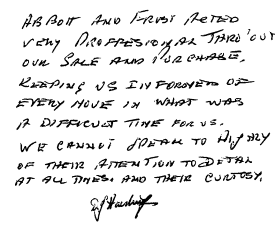 ABBOTT AND FROST ACTED
VERY PROFFESIONAL THRO'OUT
OUR SALE AND PURCHASE.
KEEPING US INFORMED OF
EVERY MOVE IN WHAT WAS
A DIFFICULT TIME FOR US.
WE CANNOT SPEAK TO HIGHLY
OF THEIR ATTENTION TO DETAIL
AT ALL TIMES. AND THEIR CURTOSY.